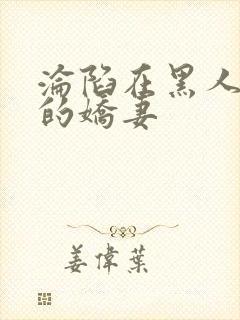 淪陷在黑人
的嬌妻
姜偉葉